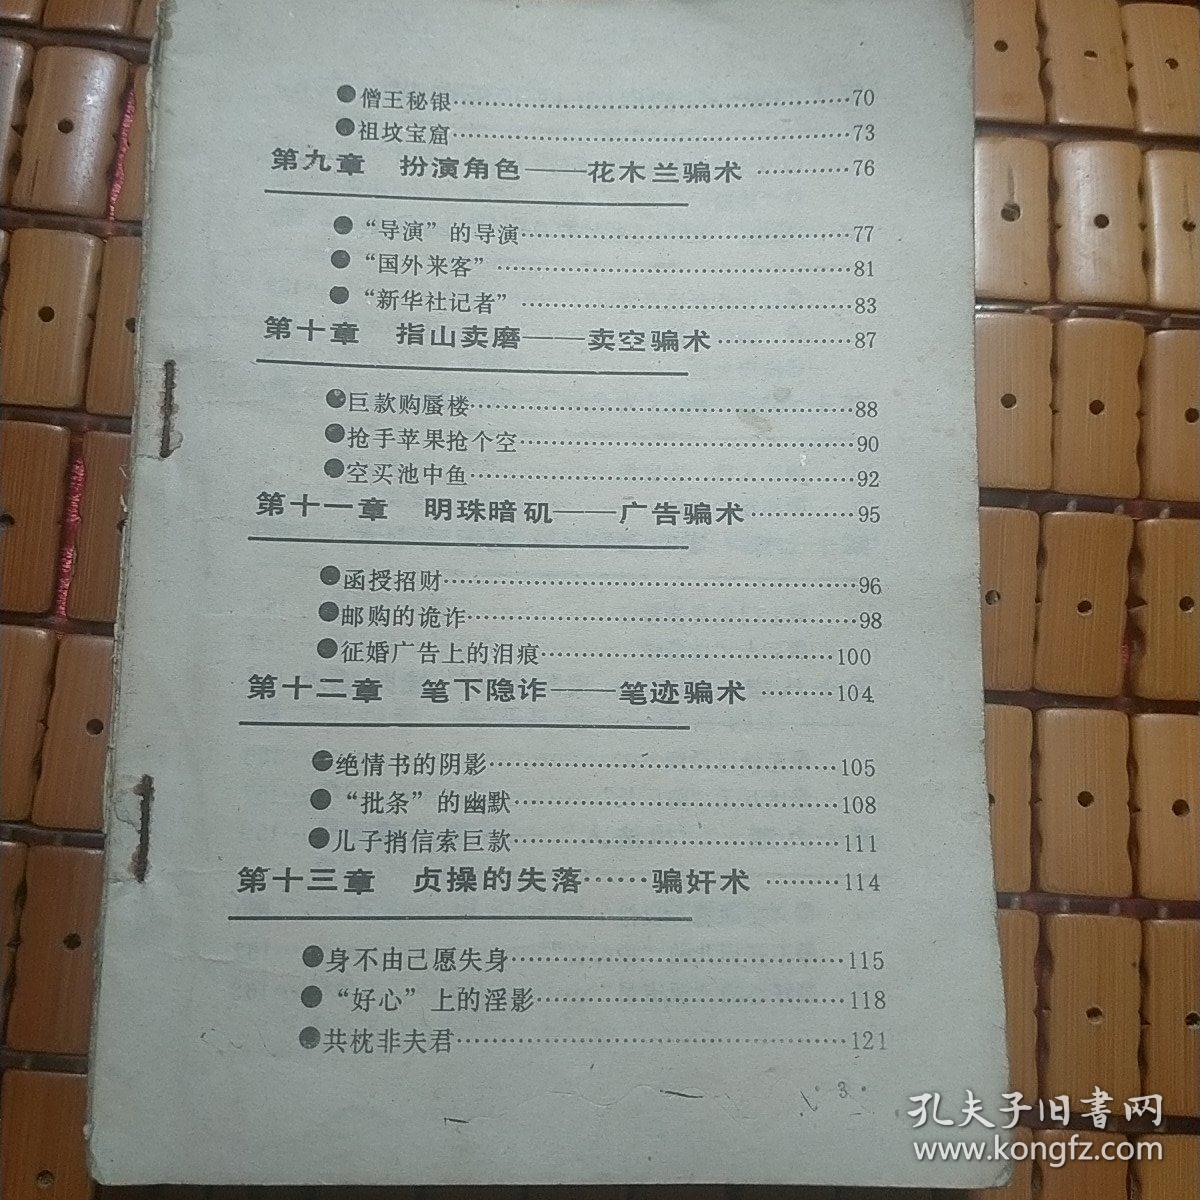 ●僧王秘银……………………………………70
●祖坟宝窟……………………………………73
第九章　扮演角色——花木兰骗术…………76
●“导演”的导演………………………………77
●“国外来客”…………………………………81
●“新华社记者”………………………………83
第十章　指山卖磨——卖空骗术……………87
●巨款购蜃楼…………………………………88
●抢手苹果抢个空……………………………90
●空买池中鱼…………………………………92
第十一章　明珠暗矶——广告骗术…………95
●函授招财……………………………………96
●邮购的诡诈…………………………………98
●征婚广告上的泪痕…………………………100
第十二章　笔下隐诈——笔迹骗术………104
●绝情书的阴影………………………………105
●“批条”的幽默………………………………108
●儿子捎信索巨款……………………………111
第十三章　贞操的失落……骗奸术………114
●身不由己愿失身……………………………115
●“好心”上的淫影……………………………118
●共枕非夫君…………………………………121
·3·
孔夫子旧書网
www.kongfz.com